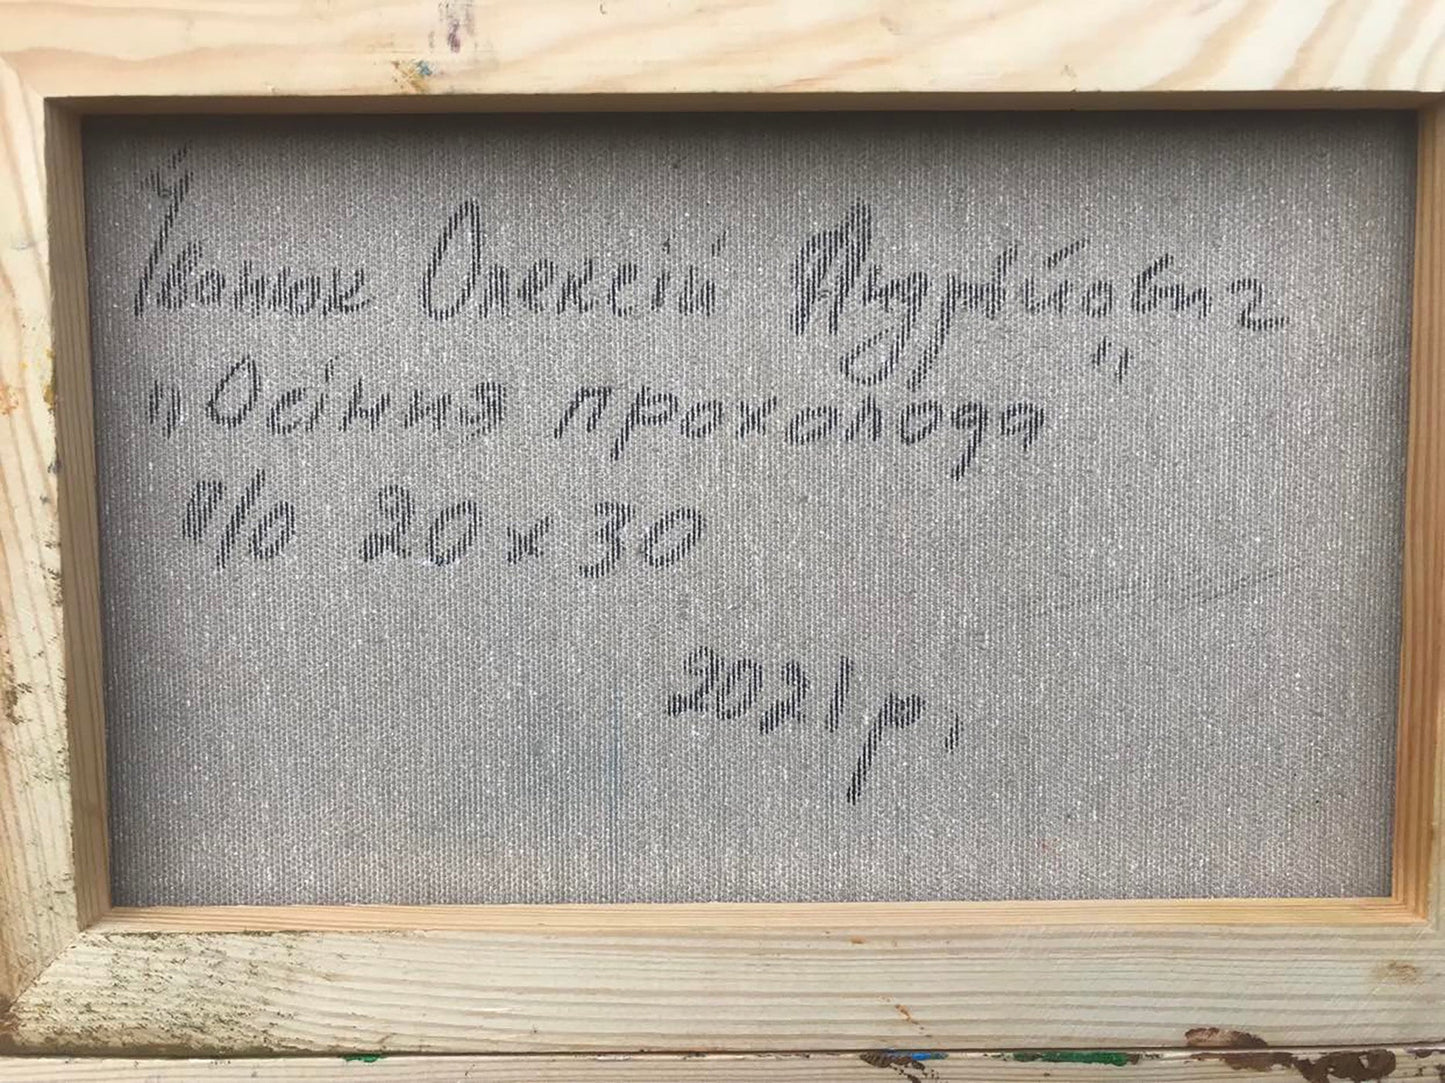 Іванюк Олексій Андрійович
"Осіння прохолода"
п/о 20х30
2021 р.